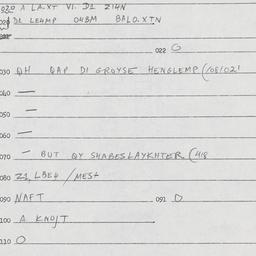 020 A LA.XT VI. D1 Z14N
D1 LEYMP 04BM BALO.XTN
022 G
030 QH QAP DI GROYSE HENGLEMP (/08/021
040 —
050 —
060 —
070 — BUT QY SHABESLAYKHTER (418
080 Z1, LBE4 / MESH
090 NAFT 091 D
100 A KNOJT
110 O